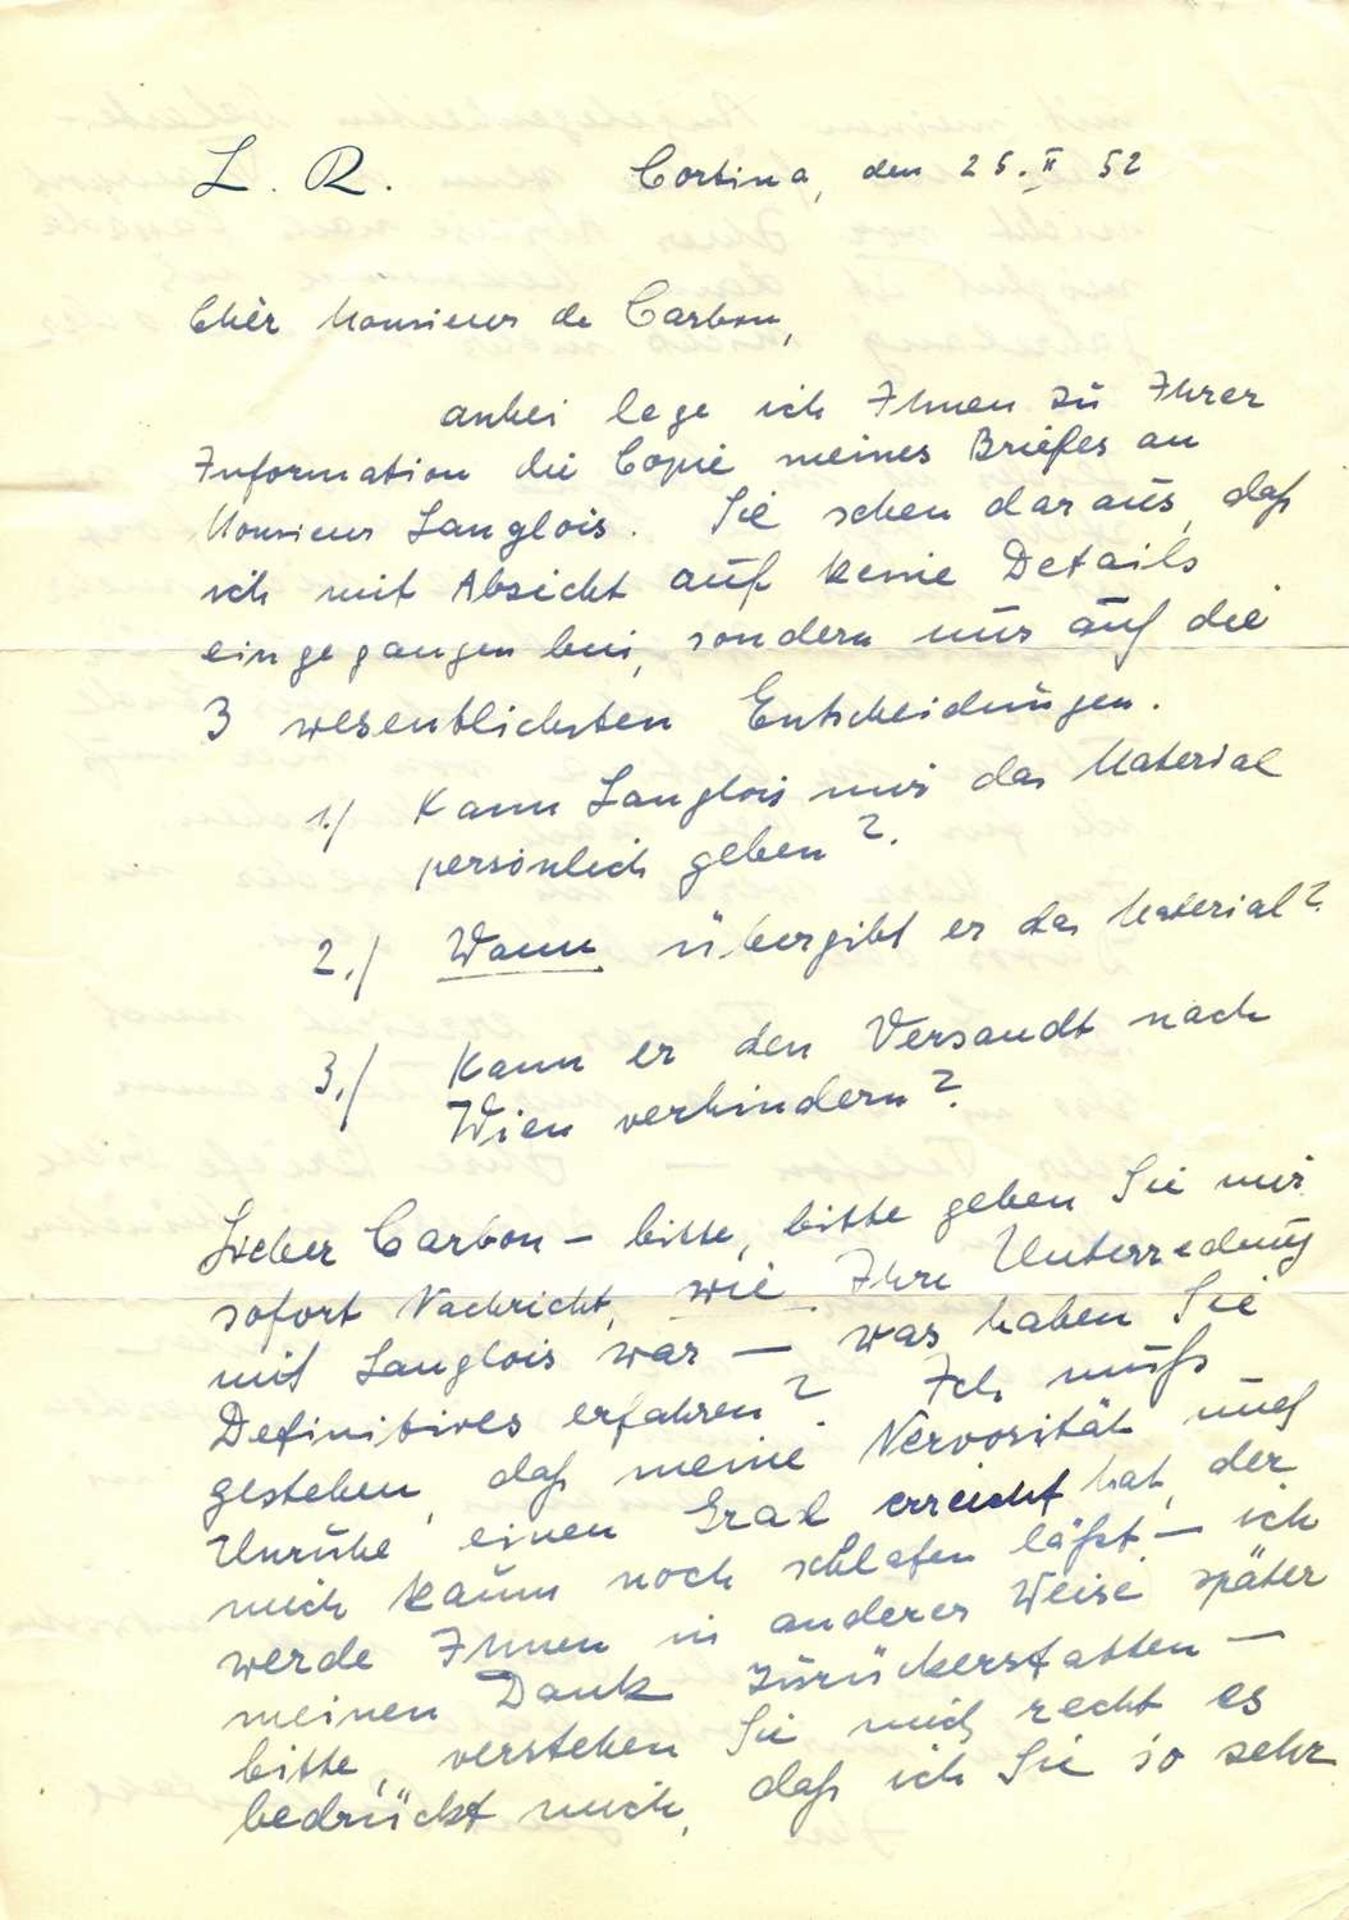 L. R. Cortina, den 25. II 52
Chèr Monsieur de Carbon,
anbei lege ich Ihnen zu Ihrer
Information die Copie meines Briefes an
Monsieur Langlois. Sie sehen daraus, daß
ich mit Absicht auf keine Details
eingegangen bin, sondern nur auf die
3 wesentlichsten Entscheidungen.
1./ Kann Langlois mir das Material
persönlich geben?
2./ Wann übergibt er das Material?
3./ Kann er den Versandt nach
Wien verhindern?
Lieber Carbon – bitte, bitte geben Sie mir
sofort Nachricht, wie Ihre Unterredung
mit Langlois war – was haben Sie
Definitives erfahren? Ich muß
gestehen, daß meine Nervosität und
Unruhe einen Grad erreicht hat, der
mich kaum noch schlafen läßt – ich
werde Ihnen in anderer Weise später
meinen Dank zurückerstatten –
bitte, verstehen Sie mich recht, es
bedrückt mich, daß ich Sie so sehr